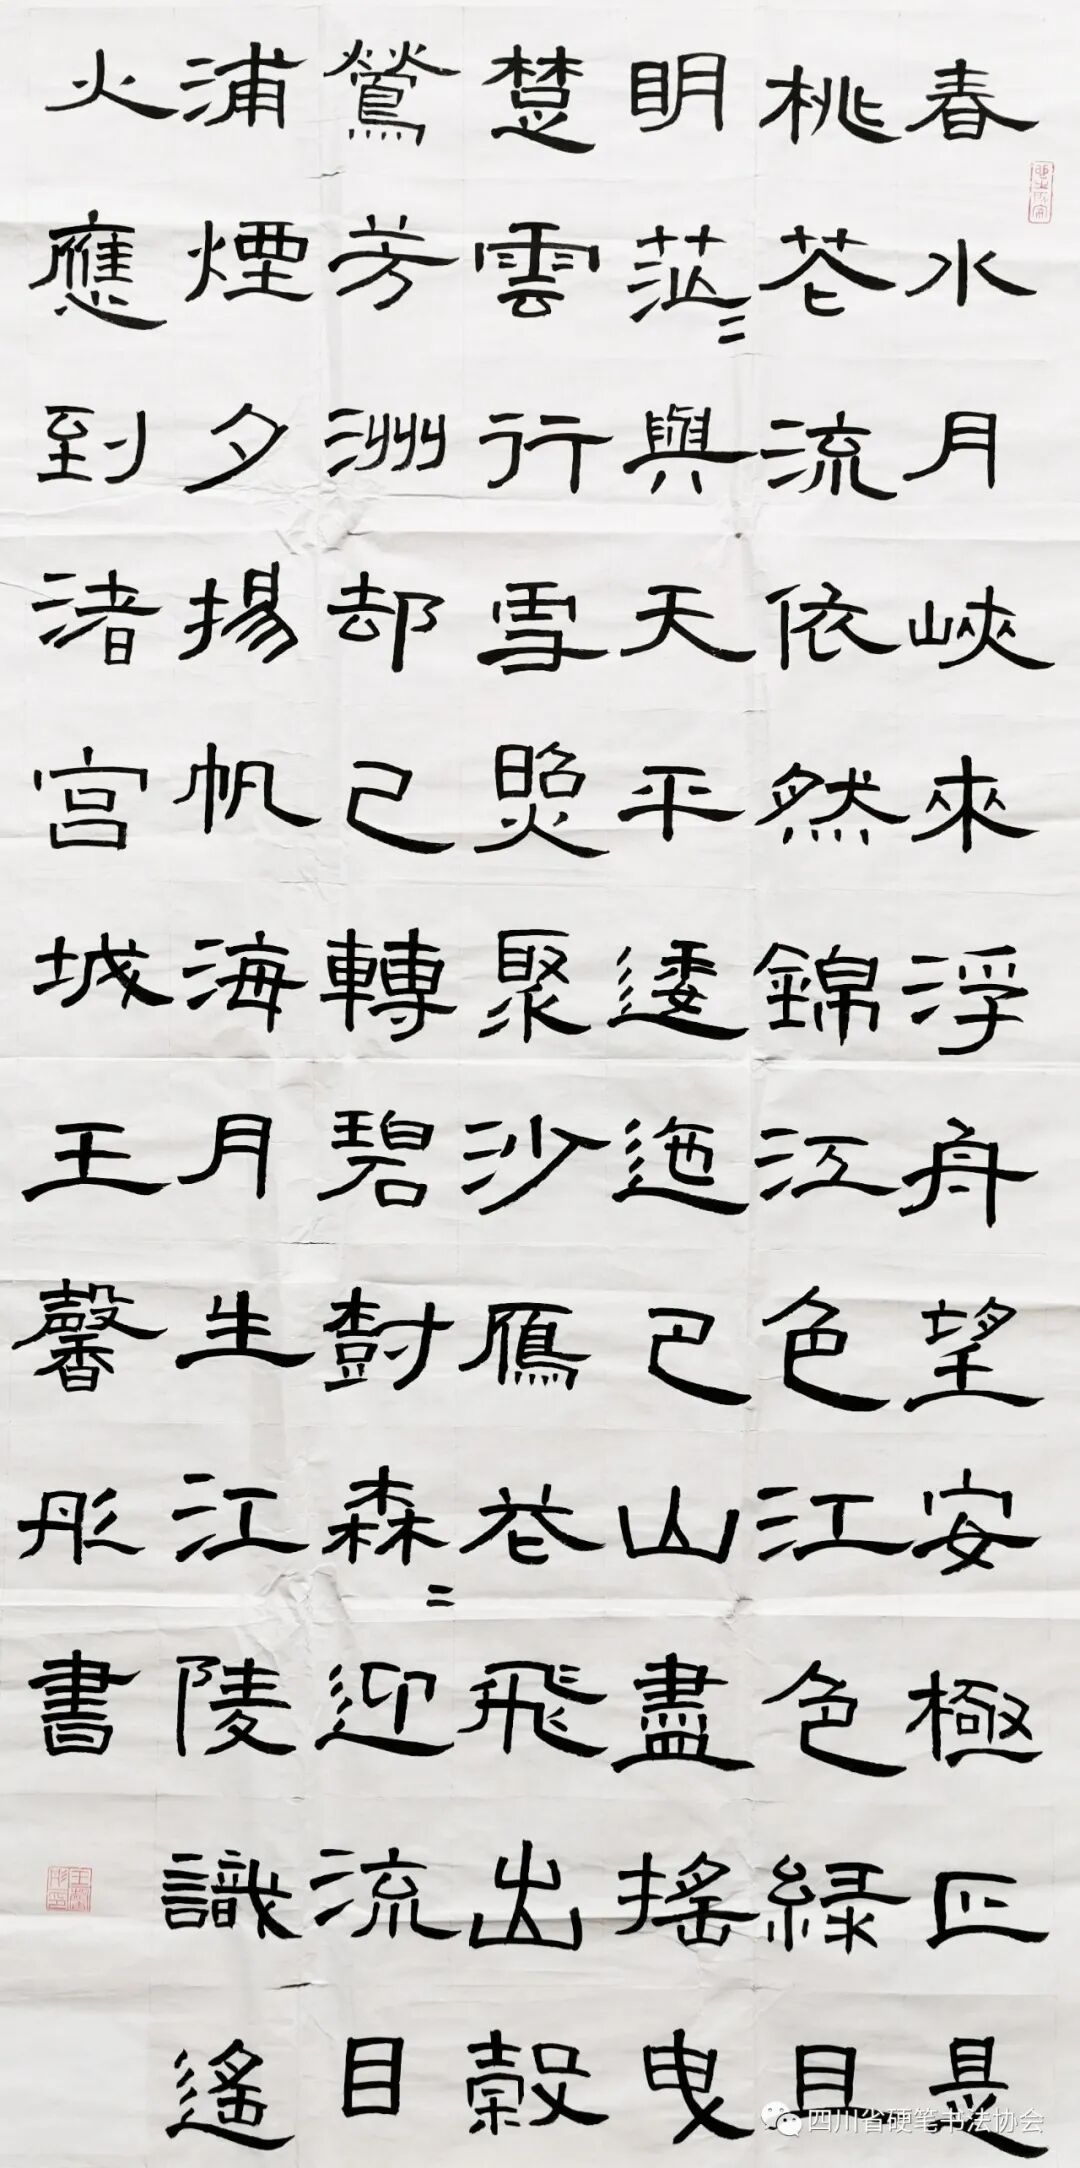 春水月峽來浮舟望安極正是
桃花流依然錦江色江色綠且
明茫〻與天平逶迤巴山盡搖曳
楚雲行雪照聚沙雁花飛出穀
鶯芳洲却已轉碧樹森〻迎流目
浦煙夕揚帆海月生江陵識遙
火應到渚宮城王馨彤書
王馨彤印
四川省硬笔书法协会